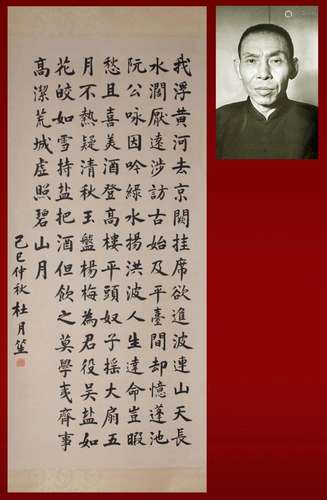 我浮黄河去京闕挂席欲進波連山天長
水濶厭遠涉訪古始及平臺間却憶蓬池
阮公詠因吟綠水揚洪波人生達命豈暇
愁且喜美酒登高樓平頭奴子搖大扇五
月不熱疑清秋玉盤楊梅為君役吳盐如
花皎如雪持盐把酒但飲之莫學夷齊事
高潔荒城虛照碧山月
己巳仲秋杜月笙